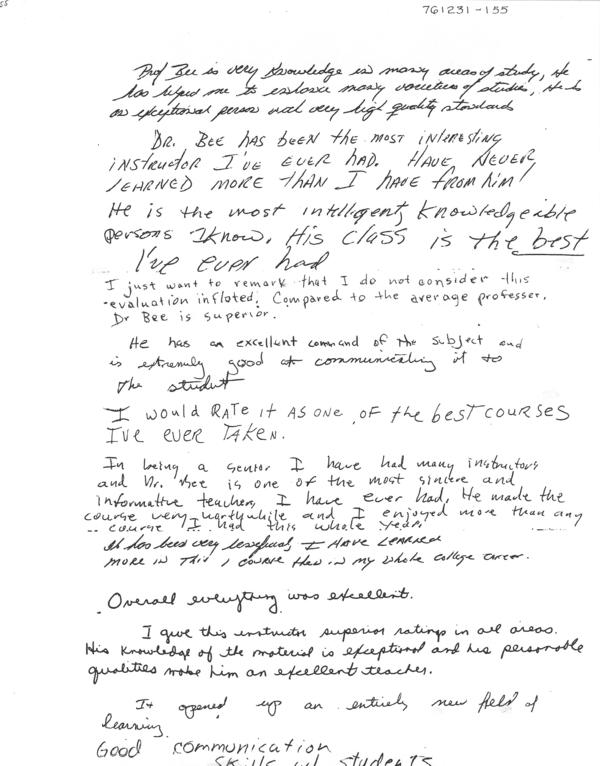 761231-155
55
Prof Bee is very knowledge in many areas of study, He
has helped me to explore many varieties of studies, He is
an exceptional person with very high quality standards
DR. BEE HAS BEEN THE MOST INTERESTING
INSTRUCTOR I'VE EVER HAD. HAVE NEVER
LEARNED MORE THAN I HAVE FROM HIM!
He is the most intelligent, knowledgeable
persons I know. His class is the best
I've ever had
I just want to remark that I do not consider this
evaluation inflated. Compared to the average professer,
Dr Bee is superior.
He has an excellant command of the subject and
is extremely good at communicating it to
the student
I would RATE it AS ONE OF the best COURSES
I'VE EVER TAKEN.
In being a senior I have had many instructors
and Dr. Bee is one of the most sincere and
informative teachers I have ever had, He made the
course very worthwhile and I enjoyed more than any
course I had this whole year.
It has been very useful, I HAVE LEARNED
MORE IN THIS 1 COURSE then in my whole college career.
Overall everything was excellent.
I give this instructor superior ratings in all areas.
His knowledge of the material is exceptional and his personable
qualities make him an excellent teacher.
It opened up an entirely new field of
learning
Good communication
skills w/ students